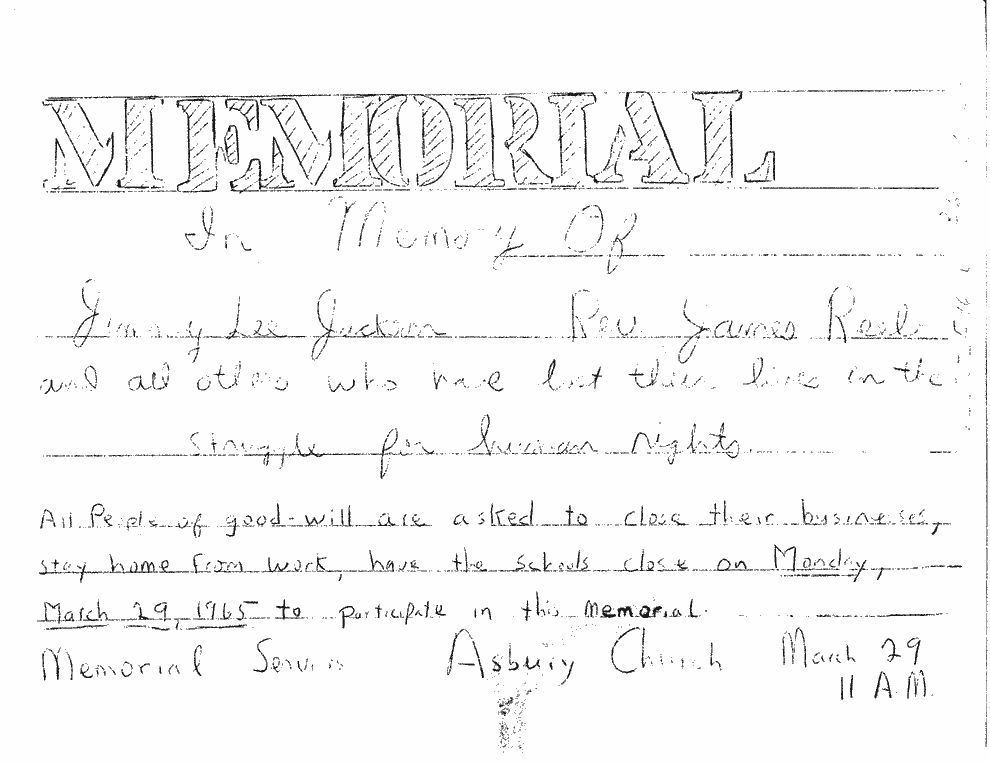 MEMORIAL
In Memory Of
Jimmy Lee Jackson Rev James Reeb
and all others who have lost their lives in the
struggle for human rights.
All People of good-will are asked to close their businesses,
stay home from work, have the schools close on Monday,
March 29, 1965 to participate in this memorial.
Memorial Service Asbury Church March 29
11 A.M.